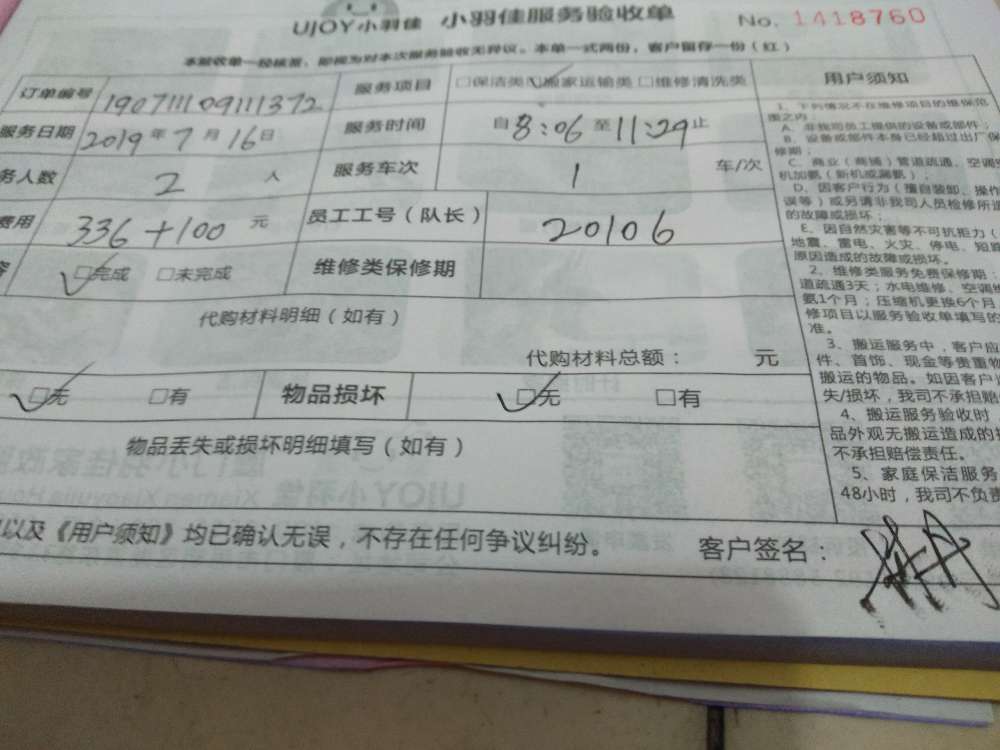 UJOY小羽佳 小羽佳服务验收单 No. 1418760
本验收单一经核签、即视为对本次服务验收无异议。本单一式两份，客户留存一份（红）
订单编号 190711109111372 服务项目 □保洁类 ☑搬家运输类 □维修清洗类
服务日期 2019年7月16日 服务时间 自8:06至11:29止
务人数 2 人 服务车次 1 车/次
费用 336+100 元 员工工号（队长） 20106
☑完成 □未完成 维修类保修期
代购材料明细（如有）
代购材料总额： 元
☑无 □有 物品损坏 ☑无 □有
物品丢失或损坏明细填写（如有）
以及《用户须知》均已确认无误，不存在任何争议纠纷。 客户签名：
用户须知
1、下列情况不在维修项目的维保范
围之内：
A、非我司员工提供的设备或部件；
B、设备或部件本身已经超过出厂保
修期；
C、商业（商铺）管道疏通、空调
机加氨（新机或漏氨）；
D、因客户行为（擅自装卸、操作
误等）或另请非我司人员检修所
的故障或损坏；
E、因自然灾害等不可抗拒力（
地震、雷电、火灾、停电、短路
原因造成的故障或损坏。
2、维修类服务免费保修期：
道疏通3天；水电维修、空调
氨1个月；压缩机更换6个月
修项目以服务验收单填写的
准。
3、搬运服务中，客户应
件、首饰、现金等贵重物
搬运的物品。如因客户
失/损坏，我司不承担赔
4、搬运服务验收时，
品外观无搬运造成的
不承担赔偿责任。
5、家庭保洁服务
48小时，我司不负责